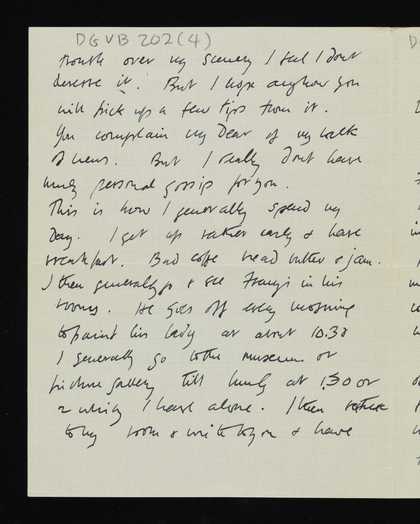 DGVB 202(4)
trouble over my scenery I feel I dont
deserve it. But I hope anyhow you
will pick up a few tips from it.
You complain my Dear of my lack
of news. But I really dont have
much personal gossip for you.
This is how I generally spend my
Day. I get up rather early & have
breakfast. Bad coffe bread butter & jam.
I then generally go & see Francis in his
rooms. He goes off every morning
to paint his lady at about 10.30
I generally go to the museum or
picture gallery till lunch at 1.30 or
2 which I have alone. I then
to my room & write to you & have